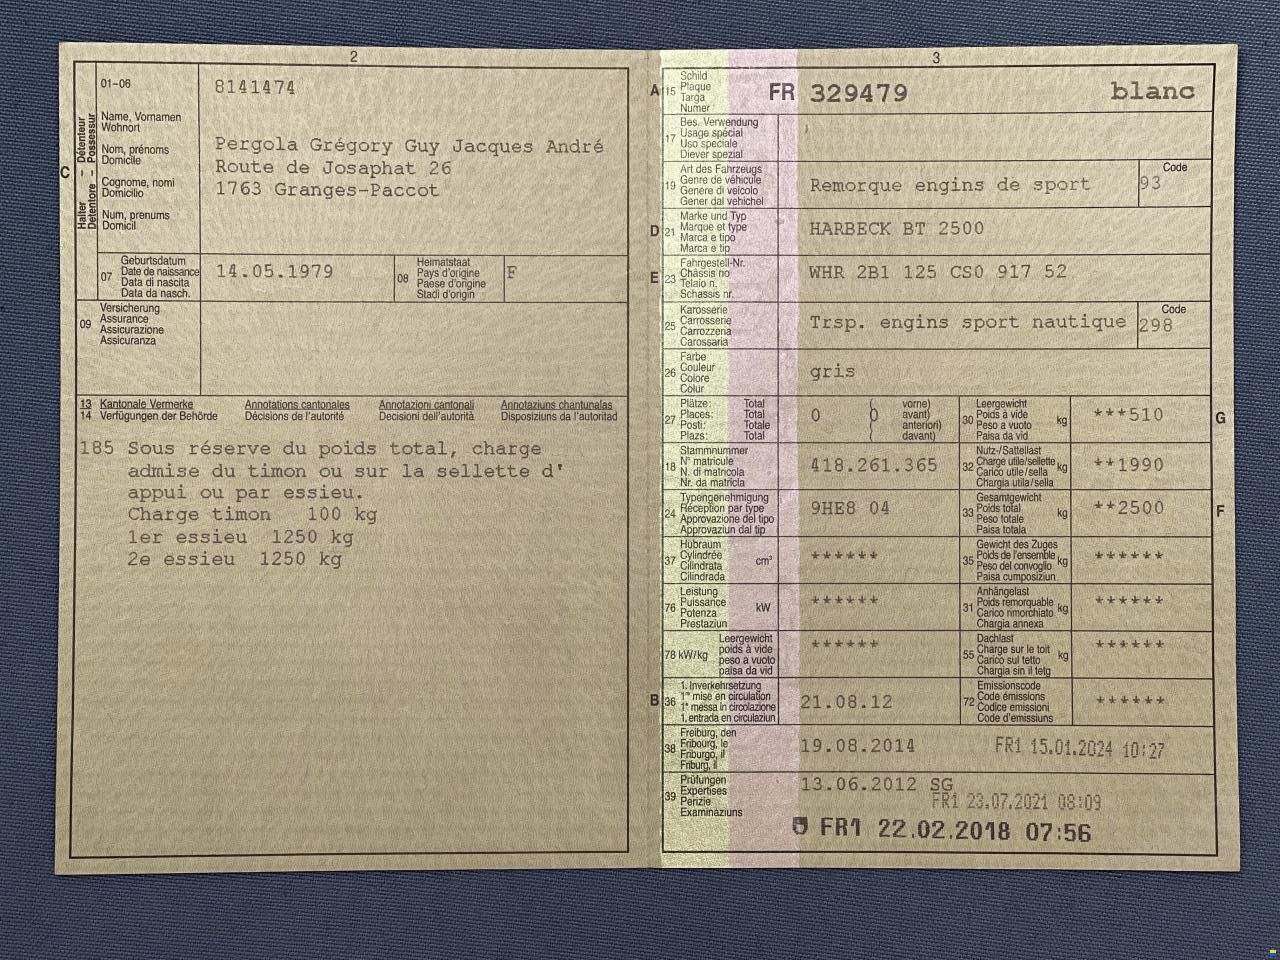 2
C
Halter - Détenteur
Detentore - Possessur
01-06
8141474
Name, Vornamen
Wohnort
Nom, prénoms
Domicile
Cognome, nomi
Domicilio
Num, prenums
Domicil
Pergola Grégory Guy Jacques André
Route de Josaphat 26
1763 Granges-Paccot
07
Geburtsdatum
Date de naissance
Data di nascita
Data da nasch.
14.05.1979
08
Heimatstaat
Pays d'origine
Paese d'origine
Stadi d'origin
F
09
Versicherung
Assurance
Assicurazione
Assicuranza
13 Kantonale Vermerke Annotations cantonales Annotazioni cantonali Annotaziuns chantunalas
14 Verfügungen der Behörde Décisions de l'autorité Decisioni dell'autorità Disposiziuns da l'autoritad
185 Sous réserve du poids total, charge
admise du timon ou sur la sellette d'
appui ou par essieu.
Charge timon 100 kg
1er essieu 1250 kg
2e essieu 1250 kg
3
A
15
Schild
Plaque
Targa
Numer
FR 329479 blanc
17
Bes. Verwendung
Usage spécial
Uso speciale
Diever spezial
19
Art des Fahrzeugs
Genre de véhicule
Genere di veicolo
Gener dal vehichel
Remorque engins de sport
Code
93
D
21
Marke und Typ
Marque et type
Marca e tipo
Marca e tip
HARBECK BT 2500
E
23
Fahrgestell-Nr.
Châssis no
Telaio n.
Schassis nr.
WHR 2B1 125 CS0 917 52
25
Karosserie
Carrosserie
Carrozzeria
Carossaria
Trsp. engins sport nautique
Code
298
26
Farbe
Couleur
Colore
Colur
gris
27
Plätze: Total
Places: Total
Posti: Totale
Plazs: Total
0
( 0
vorne)
avant)
anteriori)
davant)
30
Leergewicht
Poids à vide
Peso a vuoto
Paisa da vid
kg
***510
G
18
Stammnummer
N° matricule
N. di matricola
Nr. da matricla
418.261.365
32
Nutz-/Sattellast
Charge utile/sellette
Carico utile/sella
Chargia utila/sella
kg
**1990
24
Typengenehmigung
Réception par type
Approvazione del tipo
Approvaziun dal tip
9HE8 04
33
Gesamtgewicht
Poids total
Peso totale
Paisa totala
kg
**2500
F
37
Hubraum
Cylindrée
Cilindrata
Cilindrada
cm³
******
35
Gewicht des Zuges
Poids de l'ensemble
Peso del convoglio
Paisa cumposiziun
kg
******
76
Leistung
Puissance
Potenza
Prestaziun
kW
******
31
Anhängelast
Poids remorquable
Carico rimorchiato
Chargia annexa
kg
******
78 kW/kg
Leergewicht
poids à vide
peso a vuoto
paisa da vid
******
55
Dachlast
Charge sur le toit
Carico sul tetto
Chargia sin il tetg
kg
******
B
36
1. Inverkehrsetzung
1re mise en circulation
1a messa in circolazione
1. entrada en circulaziun
21.08.12
72
Emissionscode
Code émissions
Codice emissioni
Code d'emissiuns
******
38
Freiburg, den
Fribourg, le
Friburgo, il
Friburg, il
19.08.2014 FR1 15.01.2024 10:27
39
Prüfungen
Expertises
Perizie
Examinaziuns
13.06.2012 SG
FR1 23.07.2021 08:09
FR1 22.02.2018 07:56